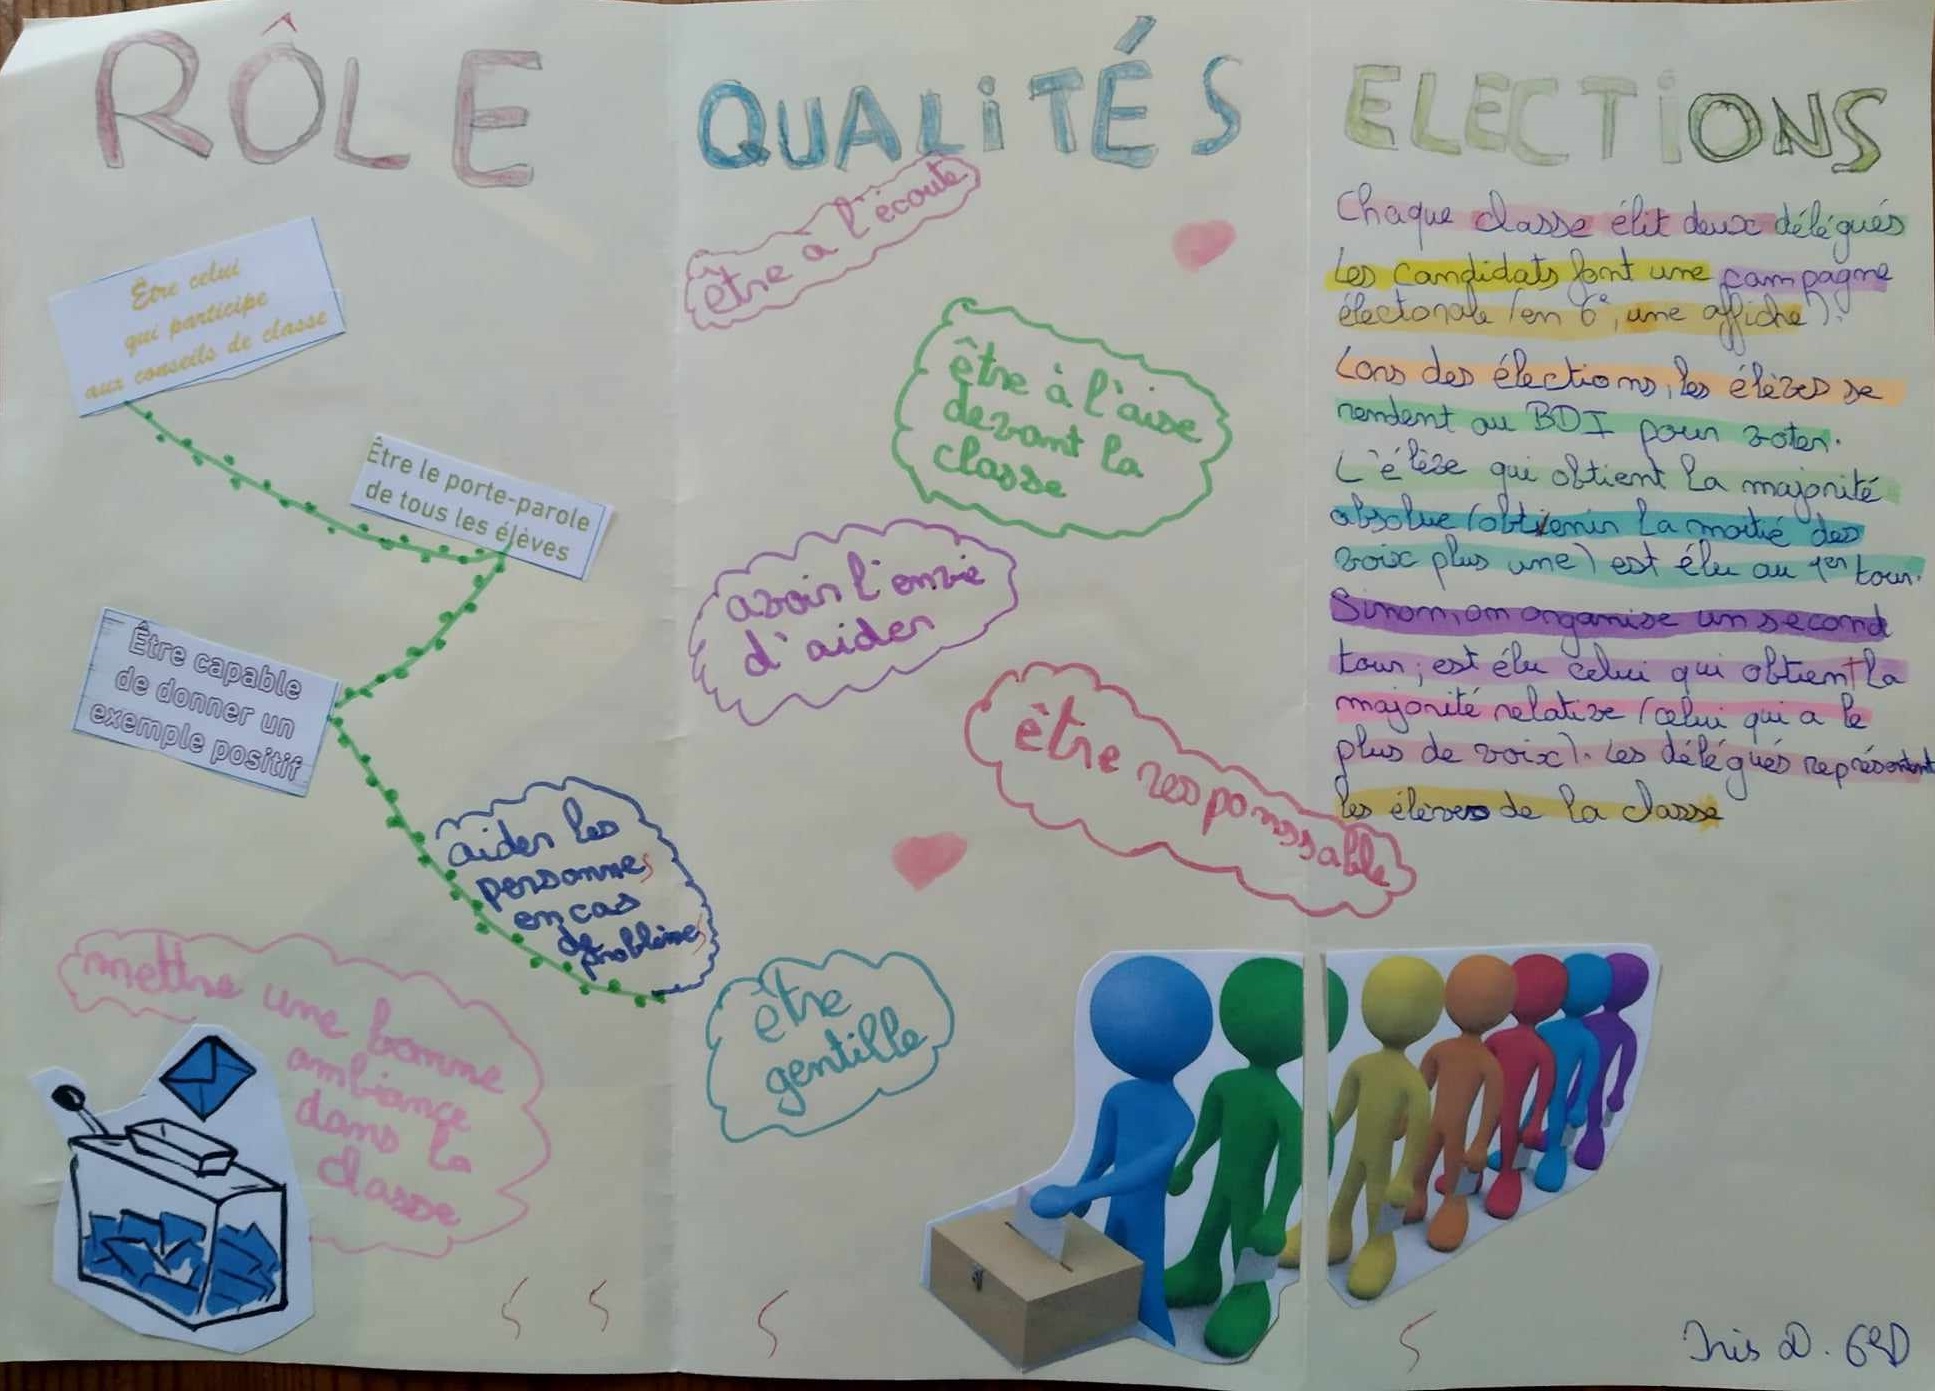 RÔLE
Être celui
qui participe
aux conseils de classe
Être le porte-parole
de tous les élèves
Être capable
de donner un
exemple positif
aider les
personnes
en cas
de
problèmes
mettre une bonne
ambiance
dans la
classe
QUALiTÉS
être à l'écoute
être à l'aise
devant la
classe
avoir l'envie
d'aider
être responssable
être
gentille
ELECTiONS
Chaque classe élit deux délégués
Les candidats font une campagne
électorale (en 6e, une affiche).
Lors des élections, les élèves se
rendent au BDI pour voter.
L'élève qui obtient la majorité
absolue (obtenir la moitié des
voix plus une) est élu au 1er tour.
Sinon, on organise un second
tour, est élu celui qui obtient la
majorité relative (celui qui a le
plus de voix). Les délégués représentent
les élèves de la classe
S S S S
Inis D. 6eD